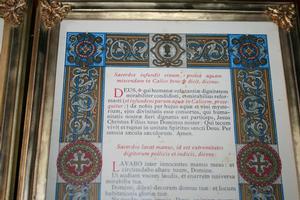 Sacerdos infundit vinum, et aquam
miscendam in Calice benedicit, dicens:
DEUS, ✠ qui humanæ substantiæ dignitatem
mirabiliter condidisti, et mirabilius refor-
masti (et infundens parum aquæ in Calicem, prose-
quitur:) da nobis per hujus aquæ et vini myste-
rium, ejus divinitatis esse consortes, qui huma-
nitatis nostræ fieri dignatus est particeps, Jesus
Christus Filius tuus Dominus noster: Qui tecum
vivit et regnat in unitate Spiritus sancti Deus. Per
omnia sæcula sæculorum. Amen.
Sacerdos lavat manus, id est extremitates
digitorum pollicis et indicis, dicens:
LAVABO inter innocentes manus meas: et
circumdabo altare tuum, Domine.
Ut audiam vocem laudis, et enarrem universa
mirabilia tua.
Domine, dilexi decorem domus tuæ, et locum